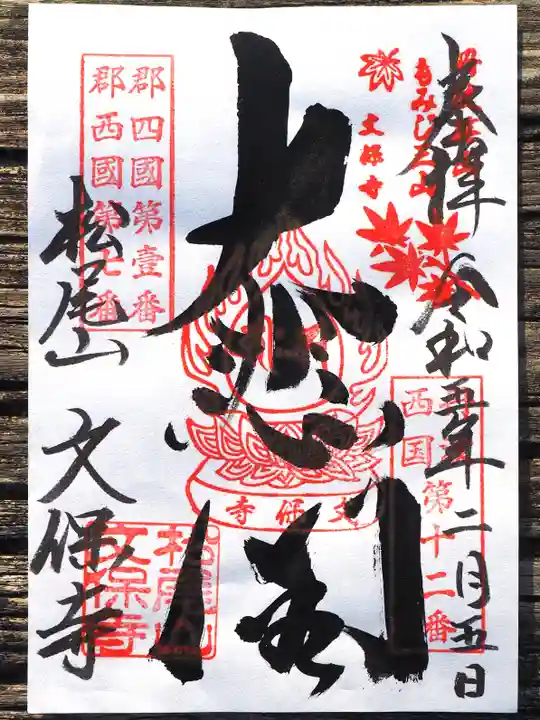 奉拝
令和五年二月五日
第十二番
西国
もみじ三山
文保寺
大悲閣
文保寺
郡四國第壹番
郡西國第七番
松尾山
文保寺
松尾山
文保寺